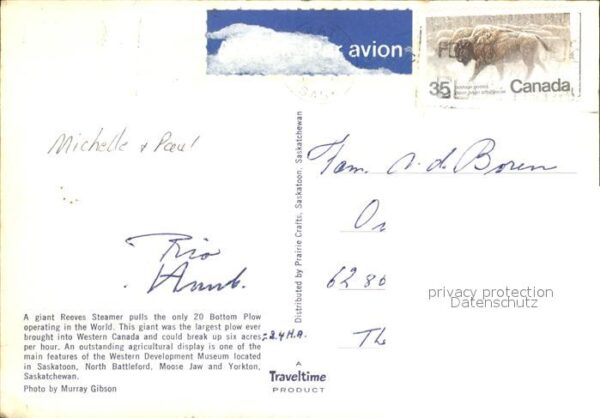 Par avion
35
Canada
Michelle + Paul
Fam. v. d. Boren
6280
The
privacy protection
Datenschutz
Distributed by Prairie Crafts, Saskatoon, Saskatchewan
A giant Reeves Steamer pulls the only 20 Bottom Plow
operating in the World. This giant was the largest plow ever
brought into Western Canada and could break up six acres
per hour. An outstanding agricultural display is one of the
main features of the Western Development Museum located
in Saskatoon, North Battleford, Moose Jaw and Yorkton,
Saskatchewan.
Photo by Murray Gibson
A
Traveltime
PRODUCT